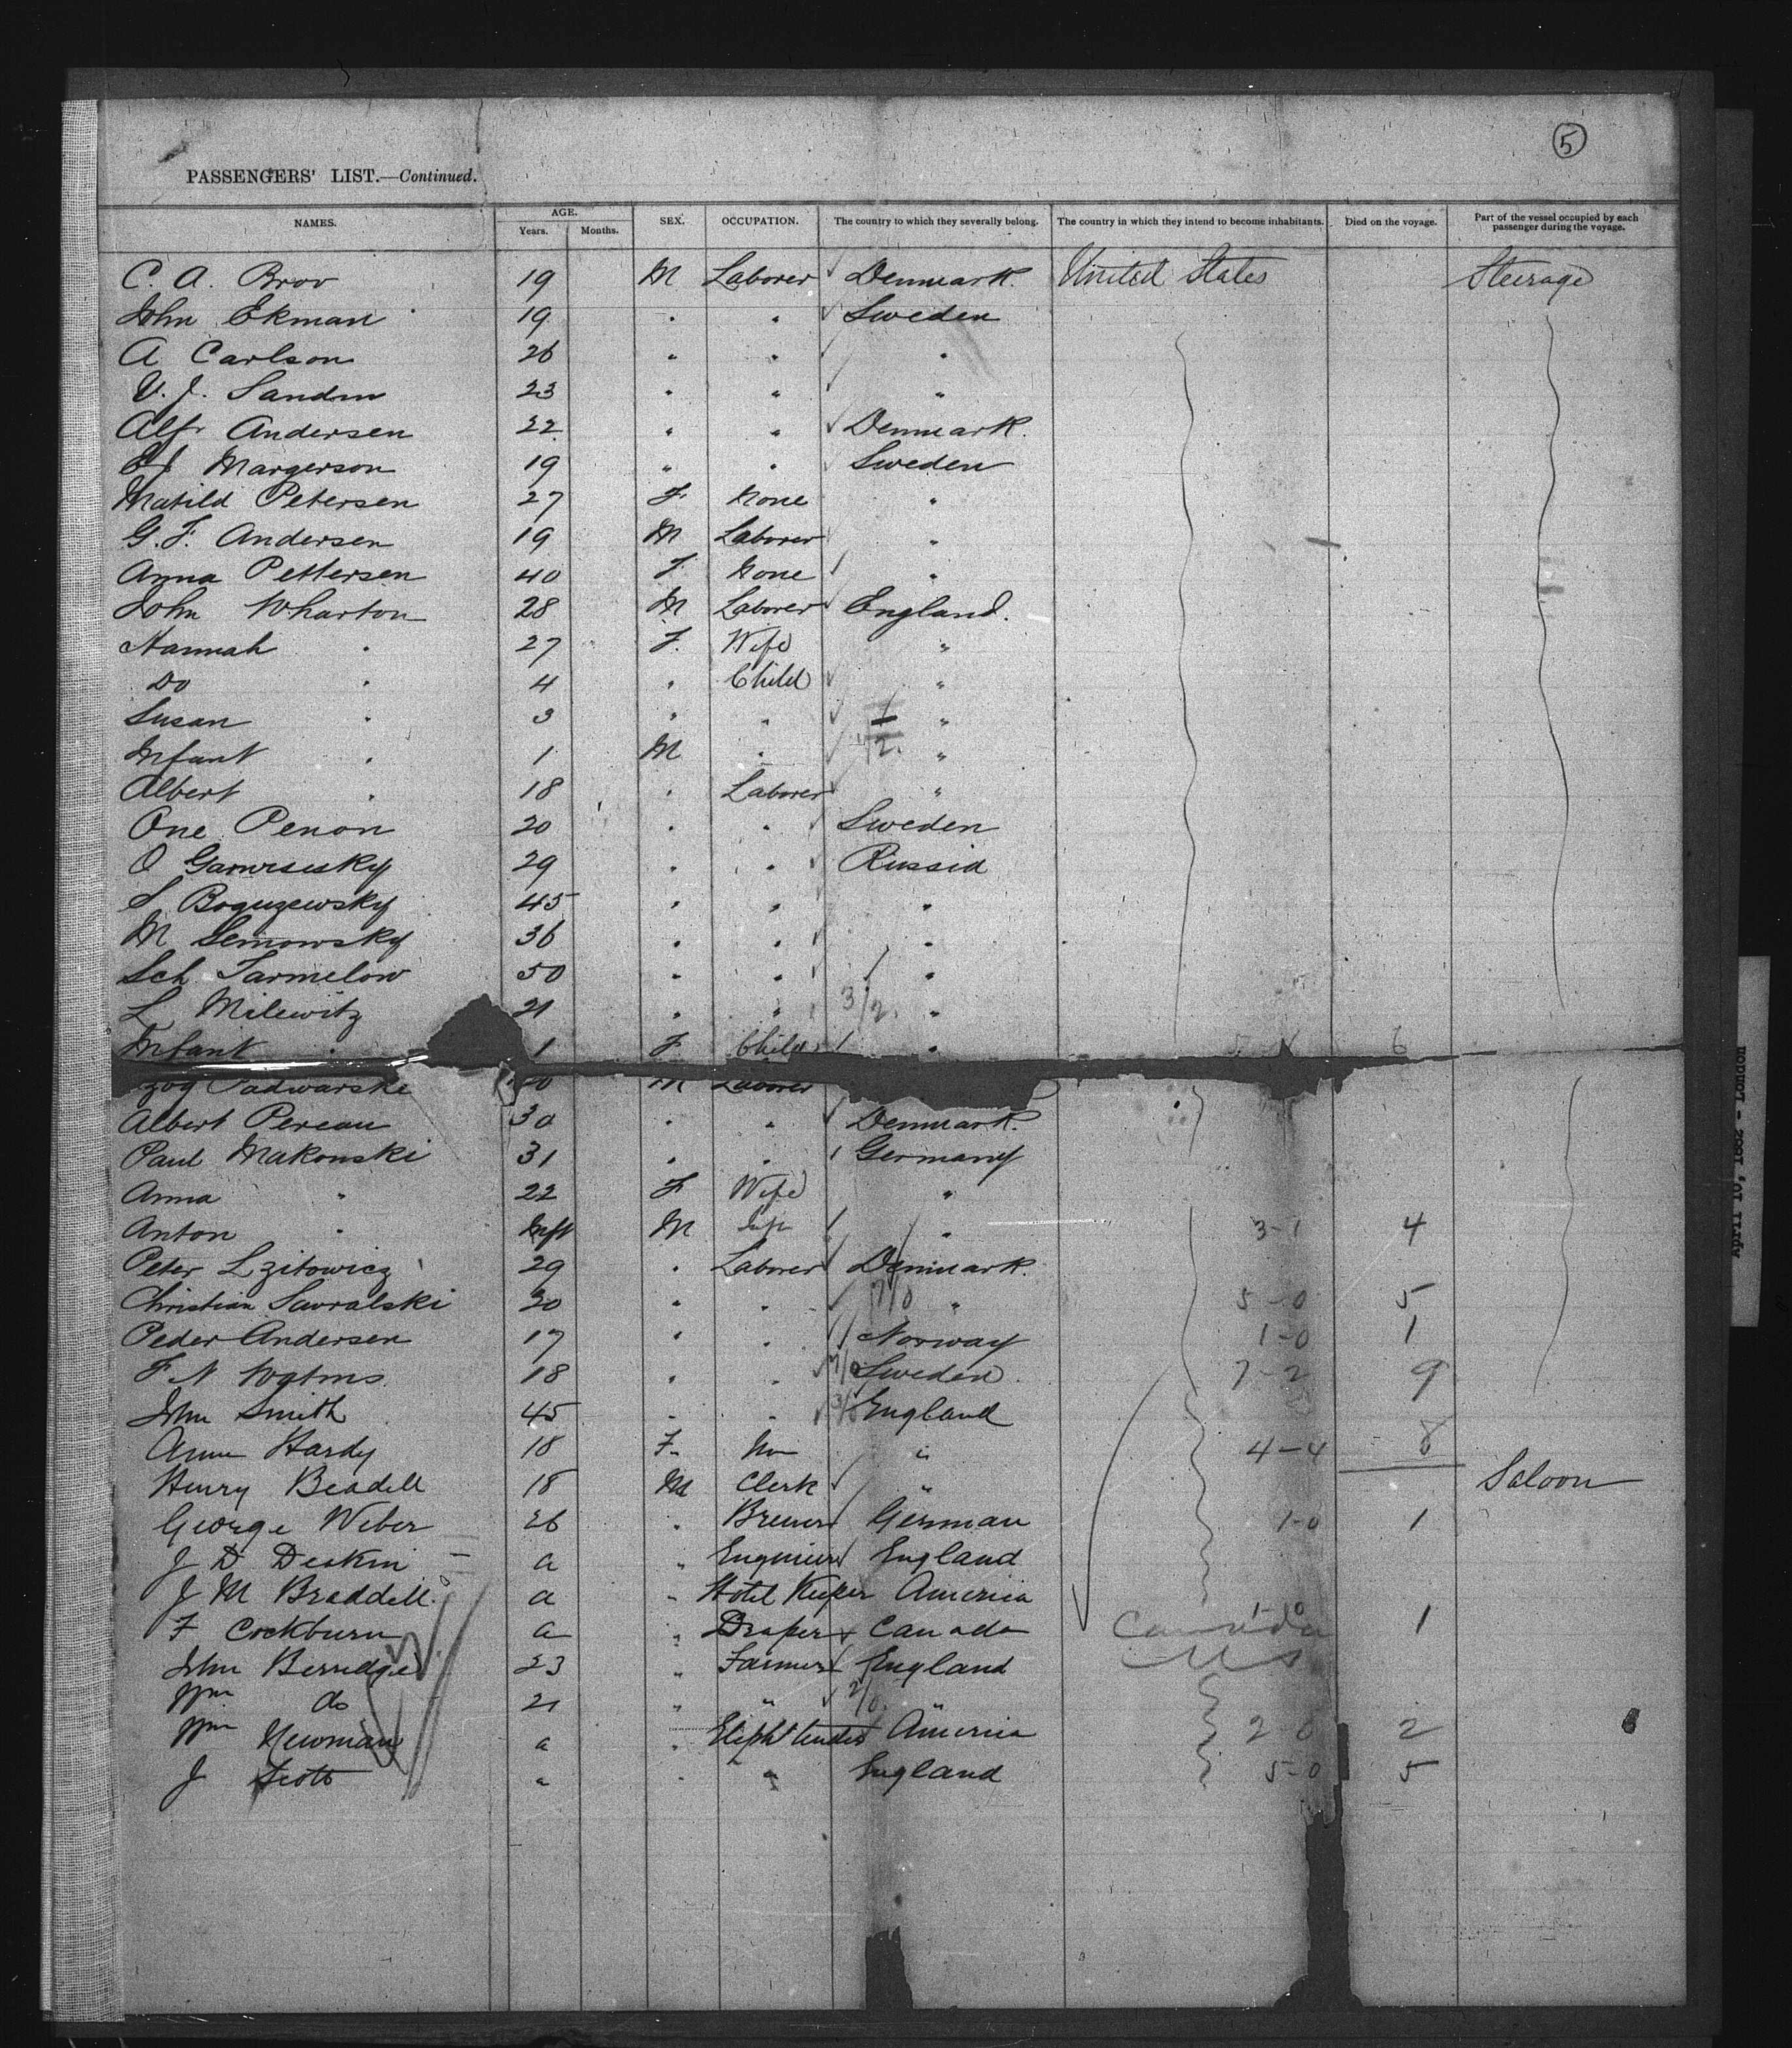 5
PASSENGERS' LIST.—Continued.
NAMES. AGE. Years. Months. SEX. OCCUPATION. The country to which they severally belong. The country in which they intend to become inhabitants. Died on the voyage. Part of the vessel occupied by each passenger during the voyage.
C. A. Brov 19 M Laborer Denmark. United States Steerage
John Ekman 19 " " Sweden
A Carlson 26 " " "
V. J. Sandin 23 " " "
Alfr Andersen 22 " " Denmark.
Margerson 19 " " Sweden
Matild Petersen 27 F None "
G. F. Andersen 19 M Laborer "
Anna Pettersen 40 F. None "
John Wharton 28 M Laborer England.
Hannah " 27 F. Wife "
Do " 4 " Child "
Susan " 3 " " "
Infant " 1 M " "
Albert " 18 " Laborer "
One Penon 20 " " Sweden
O 29 " " Russia
S Boguzewsky 45 " " "
M Semowsky 36 " " "
Sch Tarmelow 50 " " "
L Milewitz 21 " " 3/2. "
Infant " 1 F Child " 6
Padwarski M Laborer
Albert Pereau 30 " " Denmark.
Paul Makonski 31 " " Germany
Anna " 22 F Wife "
Anton " Inft M " 3-1 4
Peter Lzitowicz 29 " Laborer Denmark.
Christian Sawralski 20 " " " 5-0 5
Peder Andersen 17 " " Norway 1-0 1
F N 18 " " Sweden 7-2 9
John Smith 45 " " England
Ann Hardy 18 F. " 4-4 8
Henry Beadell 18 M Clerk " Saloon
George Weber 26 " Brewer German 1-0 1
J D Deakin a " Engineer England
J M Braddell a " Hotel Keeper America
F Cockburn a " Draper Canada Canada 1-0 1
John Berridge 23 " Farmer England US
Wm do 21 " " 2/0. "
Wm Newman a " Elepht tender America 2-0 2
J Scott a " " England 5-0 5
April 10, 1882 - London